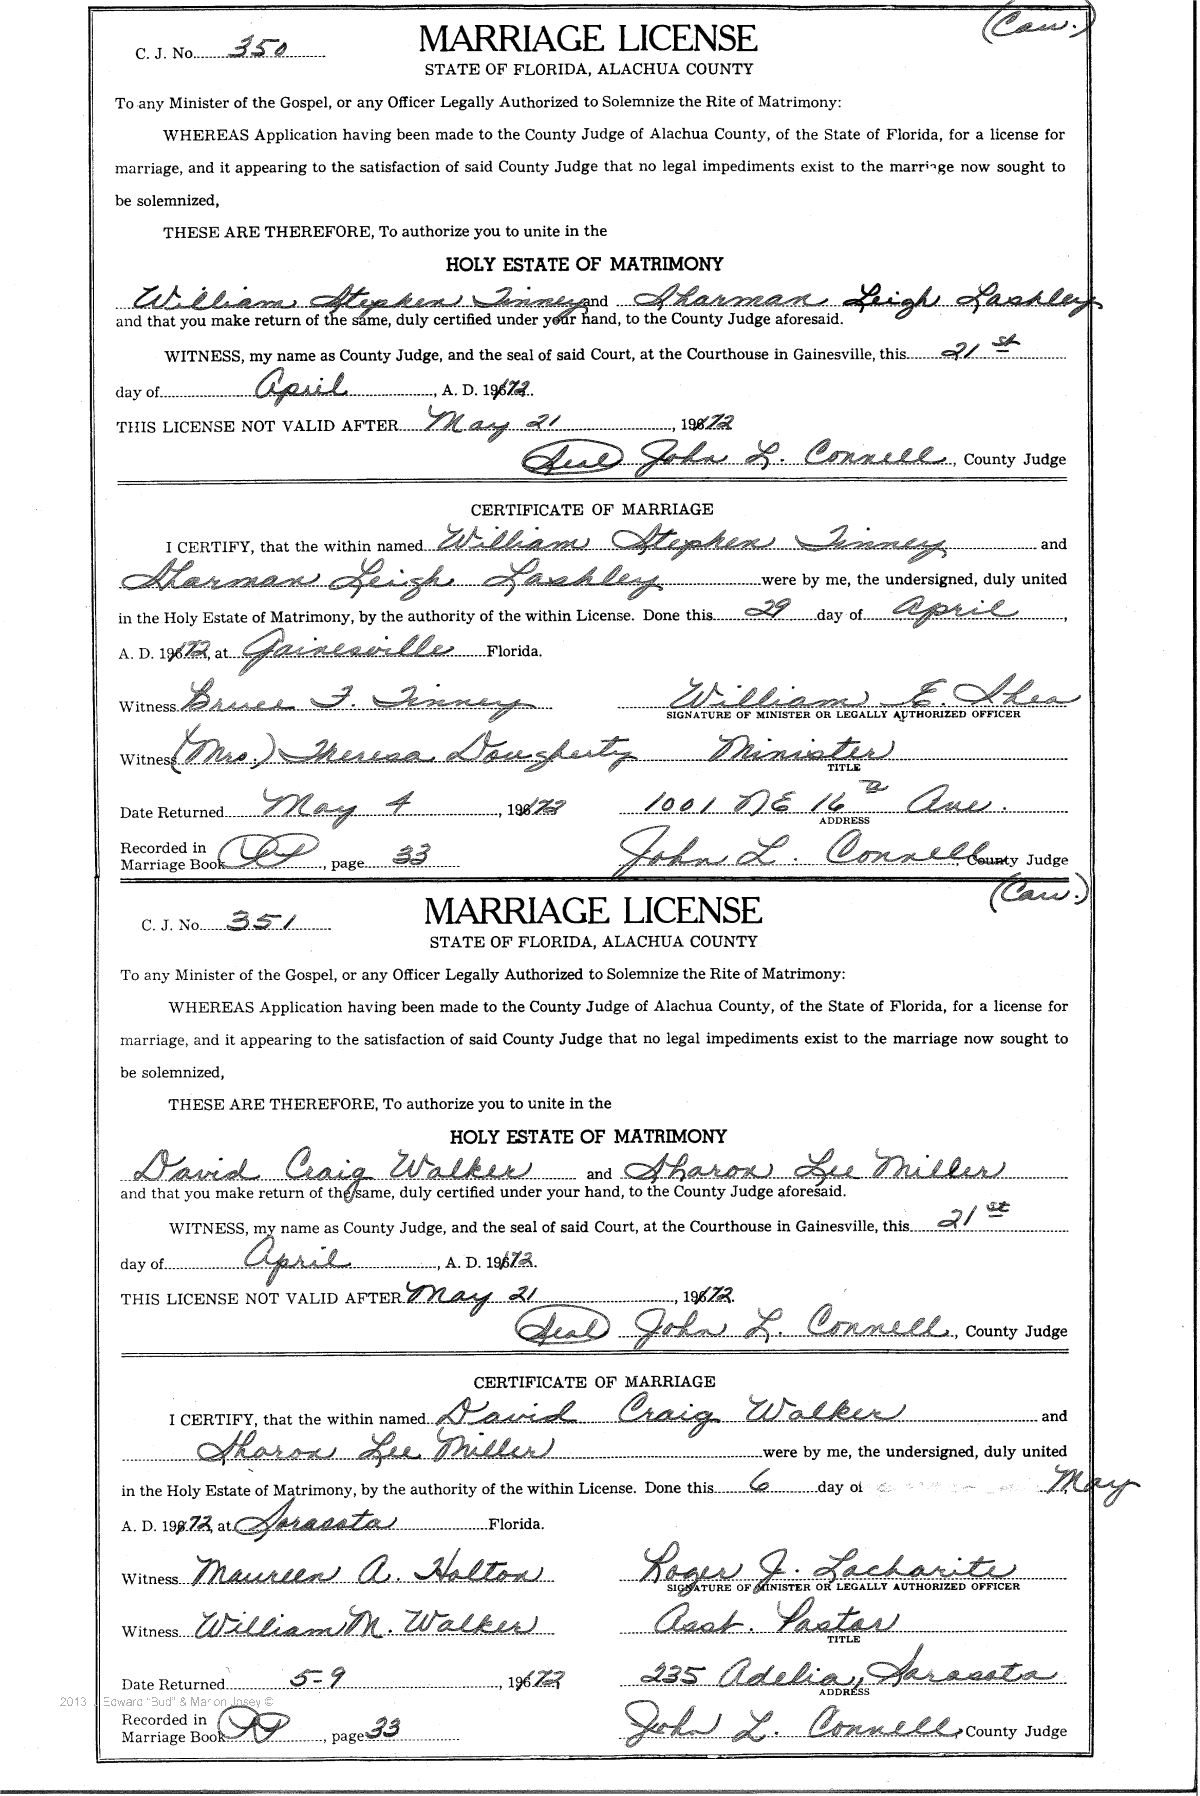 (Cau.)
C. J. No. 350 MARRIAGE LICENSE
STATE OF FLORIDA, ALACHUA COUNTY
To any Minister of the Gospel, or any Officer Legally Authorized to Solemnize the Rite of Matrimony:
WHEREAS Application having been made to the County Judge of Alachua County, of the State of Florida, for a license for
marriage, and it appearing to the satisfaction of said County Judge that no legal impediments exist to the marriage now sought to
be solemnized,
THESE ARE THEREFORE, To authorize you to unite in the
HOLY ESTATE OF MATRIMONY
William Stephen Tinney and Sharman Leigh Lashley
and that you make return of the same, duly certified under your hand, to the County Judge aforesaid.
WITNESS, my name as County Judge, and the seal of said Court, at the Courthouse in Gainesville, this 21st
day of April, A. D. 1972.
THIS LICENSE NOT VALID AFTER May 21, 1972
(Seal) John L. Connell, County Judge
CERTIFICATE OF MARRIAGE
I CERTIFY, that the within named William Stephen Tinney and
Sharman Leigh Lashley were by me, the undersigned, duly united
in the Holy Estate of Matrimony, by the authority of the within License. Done this 29 day of April,
A. D. 1972, at Gainesville Florida.
Witness Bruce F. Tinney William E. Shea
SIGNATURE OF MINISTER OR LEGALLY AUTHORIZED OFFICER
Witness (Mrs.) Theresa Dougherty Minister
TITLE
Date Returned May 4, 1972 1001 NE 16th Ave.
ADDRESS
Recorded in
Marriage Book PP, page 33 John L. Connell County Judge
(Cau.)
C. J. No. 351 MARRIAGE LICENSE
STATE OF FLORIDA, ALACHUA COUNTY
To any Minister of the Gospel, or any Officer Legally Authorized to Solemnize the Rite of Matrimony:
WHEREAS Application having been made to the County Judge of Alachua County, of the State of Florida, for a license for
marriage, and it appearing to the satisfaction of said County Judge that no legal impediments exist to the marriage now sought to
be solemnized,
THESE ARE THEREFORE, To authorize you to unite in the
HOLY ESTATE OF MATRIMONY
David Craig Walker and Sharon Lee Miller
and that you make return of the same, duly certified under your hand, to the County Judge aforesaid.
WITNESS, my name as County Judge, and the seal of said Court, at the Courthouse in Gainesville, this 21st
day of April, A. D. 1972.
THIS LICENSE NOT VALID AFTER May 21, 1972.
(Seal) John L. Connell, County Judge
CERTIFICATE OF MARRIAGE
I CERTIFY, that the within named David Craig Walker and
Sharon Lee Miller were by me, the undersigned, duly united
in the Holy Estate of Matrimony, by the authority of the within License. Done this 6 day of May
A. D. 1972, at Sarasota Florida.
Witness Maureen A. Holton Roger J. Lacharite
SIGNATURE OF MINISTER OR LEGALLY AUTHORIZED OFFICER
Witness William M. Walker Asst. Pastor
TITLE
Date Returned 5-9, 1972 235 Adelia, Sarasota
ADDRESS
2013 Edward "Bud" & Marion Josey ©
Recorded in
Marriage Book PP, page 33 John L. Connell, County Judge